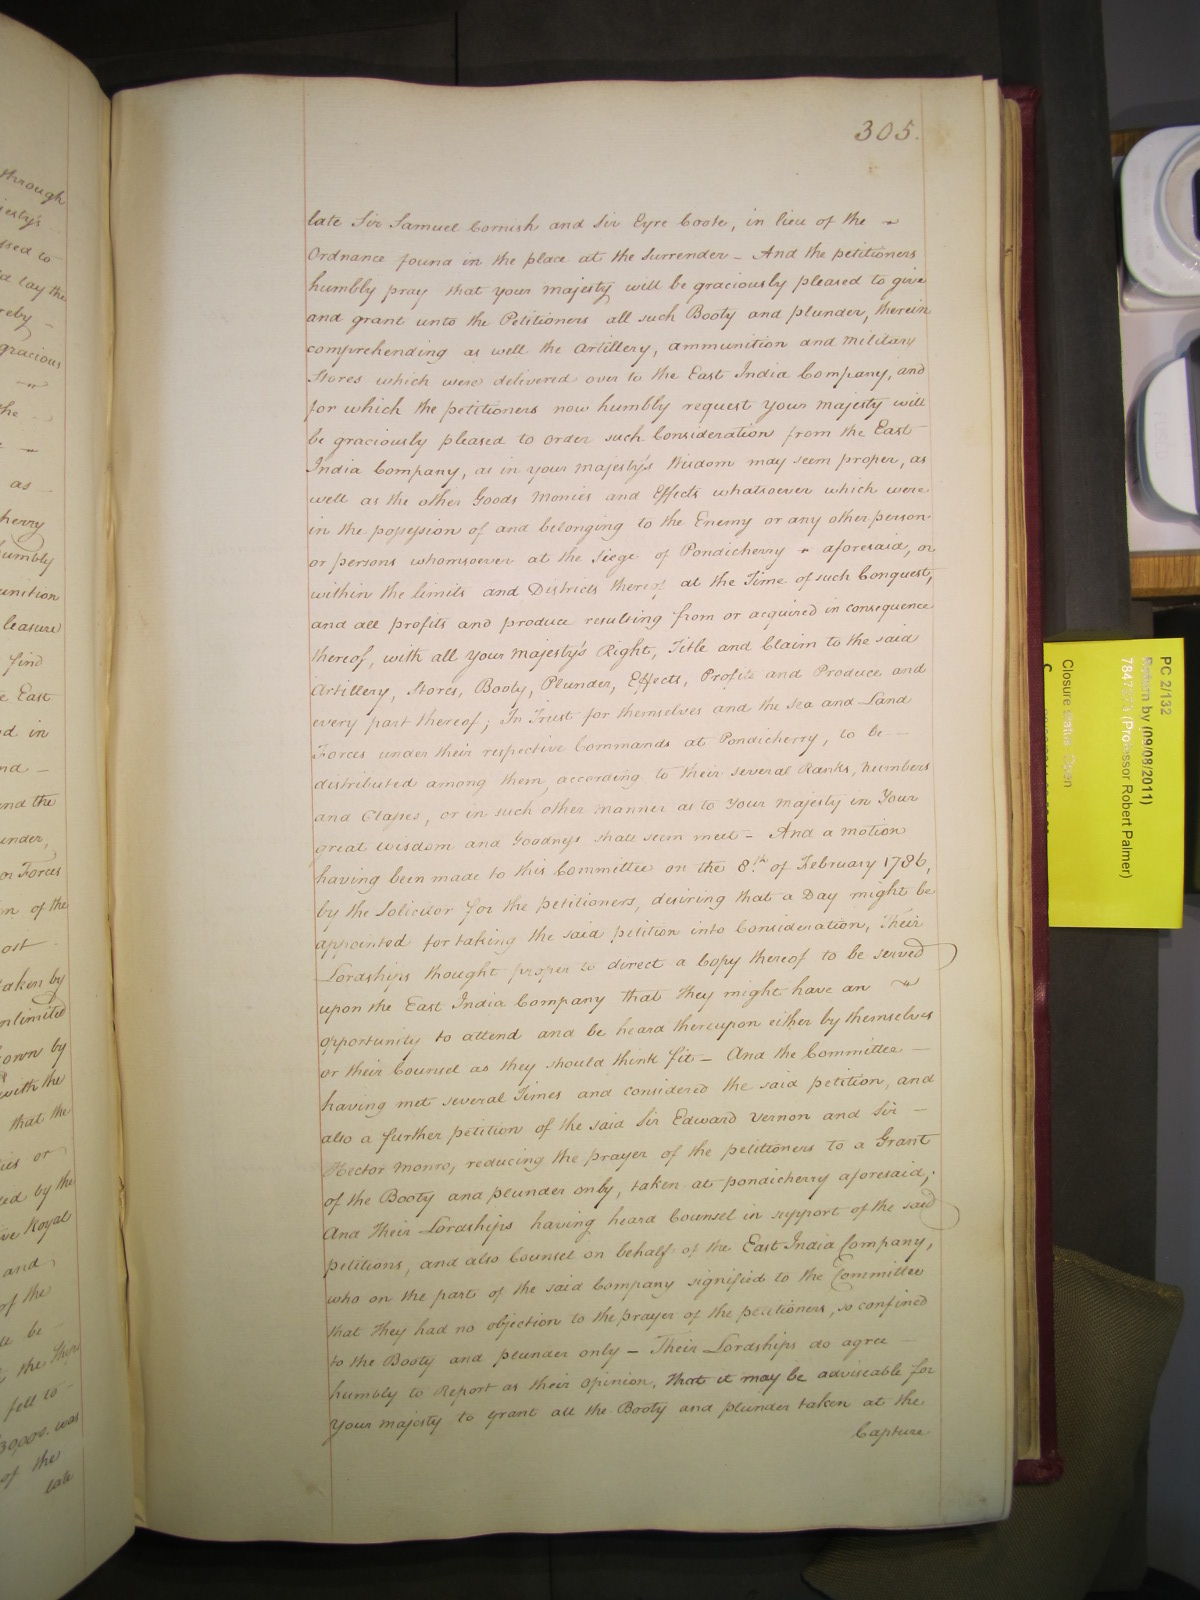 through
jesty's
ssed to
d lay the
reby –
gracious
the –
as –
herry
humbly
unition
leasure
find
e East
d in
nd –
nd the
under,
or Forces
n of the
ost
taken by
nlimited
own by
with the
that the
ies or
ed by the
ive Royal
and
of the
be
the
fell to
was
of the
late
305.
late Sir Samuel Cornish and Sir Eyre Coote, in lieu of the ~
Ordnance found in the place at the Surrender – And the petitioners
humbly pray that your majesty will be graciously pleased to give
and grant unto the Petitioners all such Booty and plunder, therein
comprehending as well the Artillery, ammunition and military
Stores which were delivered over to the East India Company, and
for which the petitioners now humbly request your majesty will
be graciously pleased to order such Consideration from the East
India Company, as in your majesty's Wisdom may seem proper, as
well as the other Goods Monies and Effects whatsoever which were
in the possession of and belonging to the Enemy or any other person
or persons whomsoever at the Siege of Pondicherry ~ aforesaid, or
within the limits and Districts thereof at the Time of such Conquest,
and all profits and produce resulting from or acquired in consequence
thereof, with all your majesty's Right, Title and Claim to the said
Artillery, Stores, Booty, Plunder, Effects, Profits and Produce and
every part thereof; In Trust for themselves and the Sea and Land
Forces under their respective Commands at Pondicherry, to be –
distributed among them, according to their several Ranks, numbers
and Classes, or in such other manner as to Your majesty in Your
great wisdom and Goodness shall seem meet – And a motion
having been made to this Committee on the 8th. of February 1786,
by the Solicitor for the petitioners, desiring that a Day might be
appointed for taking the said petition into Consideration, Their
Lordships thought proper to direct a Copy thereof to be served
upon the East India Company that they might have an ~
opportunity to attend and be heard thereupon either by themselves
or their Counsel as they should think fit – And the Committee –
having met several Times and considered the said petition, and
also a further petition of the said Sir Edward Vernon and Sir –
Hector Monro, reducing the prayer of the petitioners to a Grant
of the Booty and plunder only, taken at pondicherry aforesaid;
And Their Lordships having heard Counsel in support of the said
petitions, and also Counsel on behalf of the East India Company,
who on the part of the said Company signified to the Committee
that they had no objection to the prayer of the petitioners, so confined
to the Booty and plunder only – Their Lordships do agree –
humbly to Report as their opinion, that it may be adviseable for
Your majesty to grant all the Booty and plunder taken at the
Capture
PC 2/132
Return by (09/08/2011)
(Professor Robert Palmer)
Closure status: Open